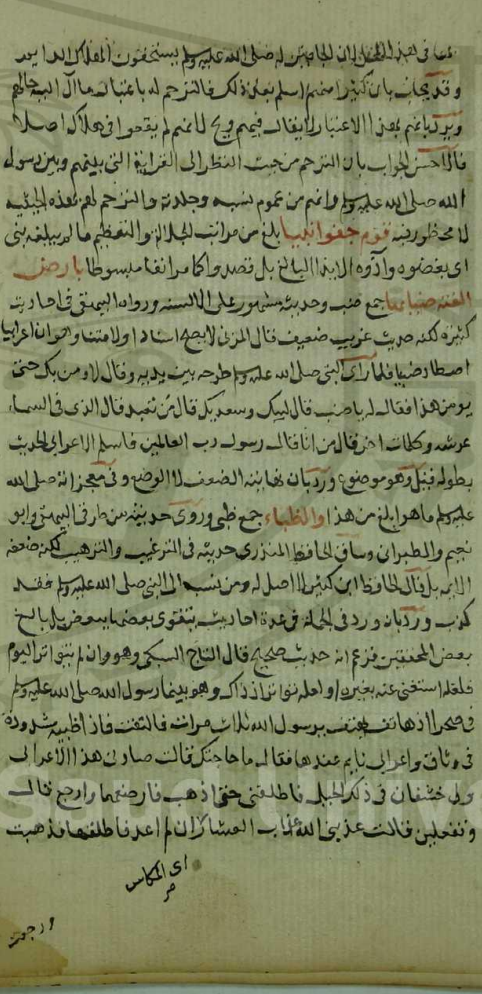 في هذا المحل لان الجاحدين له صلى الله عليه وسلم يستحقون الهلاك الدايم
وقد يجاب بان كثيرا منهم اسلم بعد ذلك فالترحم له باعتبار ما آل اليه حالهم
ويرد بانهم بهذا الاعتبار لا يقال فيهم ويح لانهم لم يقعوا في هلاك اصلا
فالاحسن الجواب بان الترحم من حيث النظر الى القرابة التي بينهم وبين رسول
الله صلى الله عليه وسلم وانهم من عموم نسبه وجلدته والترحم لهم بهذه الحيثية
لا محظور فيه قوم جفوا نبيا بلغ من مراتب الجلالة والتعظيم ما لم يبلغه نبي
اي بغضوه وآذوه الايذا البالغ بل قصدوا كما مر انفا مبسوطا بارض
الفته ضبابها جمع ضب وحديثه مشهور على الالسنه ورواه البيهقي في احاديث
كثيرة لكنه حديث غريب ضعيف قال المزي لا يصح اسنادا ولا متنا وهو ان اعرابيا
اصطاد ضبا فلما رأى النبي صلى الله عليه وسلم طرحه بين يديه وقال لا اومن بك حتى
يومن هذا فقال له يا ضب قال لبيك وسعديك قال من تعبد قال الذي في السماء
عرشه وكلمات اخر قال من انا قال رسول رب العالمين فاسلم الاعرابي الحديث
بطوله قيل وهو موضوع ورد بان نهايته الضعف لا الوضع وفي معجزاته صلى الله
عليه وسلم ما هو ابلغ من هذا والظباء جمع ظبي وروى حديثه من طرق البيهقي وابو
نعيم والطبراني وساق الحافظ المنذري حديثه في الترغيب والترهيب لكنه ضعفه
الايمة بل قال الحافظ ابن كثير لا اصل له ومن نسبه الى النبي صلى الله عليه وسلم فقد
كذب ورد بان ورد في الجملة في عدة احاديث يتقوى بعضها ببعض بل بالغ
بعض المحققين فزعم انه حديث صحيح قال التاج السبكي وهو وان لم يتواتر اليوم
فلعله استغنى عنه بغيره او لعله تواتر اذ ذاك وهو بينما رسول الله صلى الله عليه وسلم
في صحرا اذ هاتف يهتف يا رسول الله ثلاث مرات فالتفت فاذا ظبية مشدودة
في وثاق واعرابي نايم عندها فقال ما حاجتك قالت صادني هذا الاعرابي
ولي خشفان في ذلك الجبل فاطلقني حتى اذهب فارضعهما وارجع قال
وتفعلين قالت عذبني الله عذاب العشار ان لم اعد فاطلقها فذهبت
اي المكاس
ورجعت